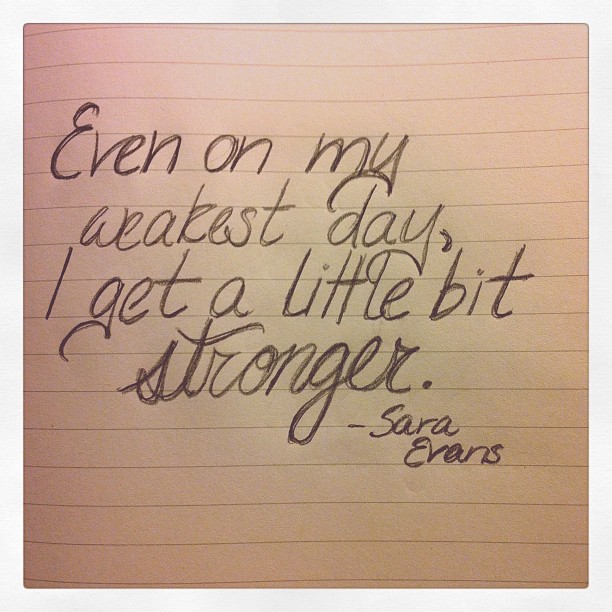 Even on my
weakest day,
I get a little bit
stronger.
- Sara
Evans